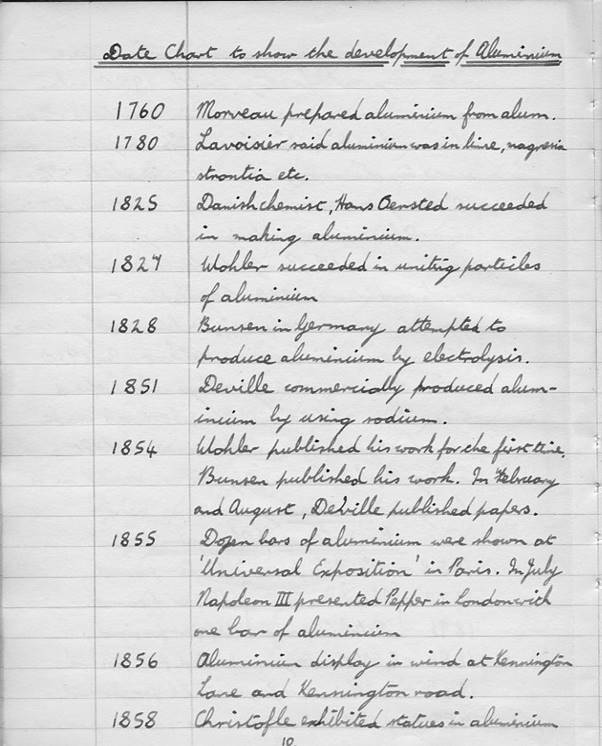 Date Chart to show the development of Aluminium
1760 Morveau prepared aluminium from alum.
1780 Lavoisier said aluminium was in lime, magnesia
strontia etc.
1825 Danish chemist, Hans Oersted succeeded
in making aluminium.
1827 Wohler succeeded in uniting particles
of aluminium
1828 Bunsen in Germany attempted to
produce aluminium by electrolysis.
1851 Deville commercially produced alum-
inium by using sodium.
1854 Wohler published his work for the first time.
Bunsen published his work. In February
and August, Deville published papers.
1855 Dozen bars of aluminium were shown at
'Universal Exposition' in Paris. In July
Napoleon III presented Pepper in London with
one bar of aluminium
1856 Aluminium display in wind at Kennington
Lane and Kennington road.
1858 Christofle exhibited statues in aluminium
10.